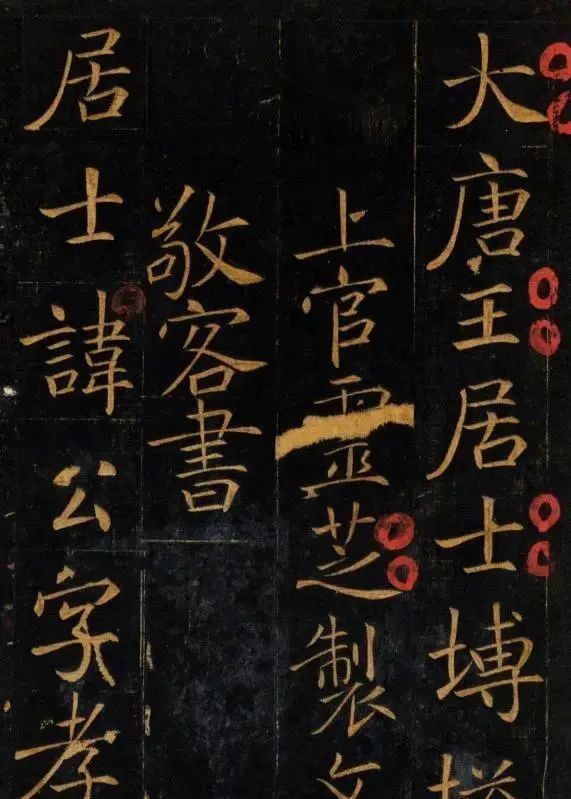 大唐王居士塼塔
上官靈芝製文
敬客書
居士諱公字孝